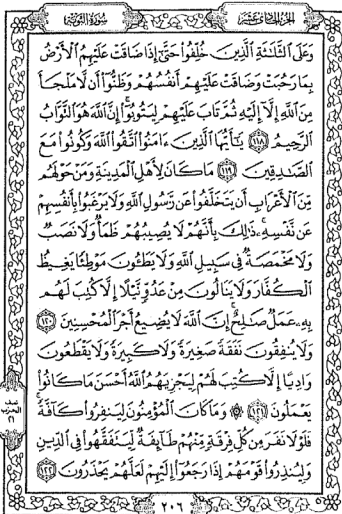 الجزء الحادي عشر
سورة التوبة
وَعَلَى ٱلثَّلَٰثَةِ ٱلَّذِينَ خُلِّفُوا۟ حَتَّىٰٓ إِذَا ضَاقَتْ عَلَيْهِمُ ٱلْأَرْضُ
بِمَا رَحُبَتْ وَضَاقَتْ عَلَيْهِمْ أَنفُسُهُمْ وَظَنُّوٓا۟ أَن لَّا مَلْجَأَ
مِنَ ٱللَّهِ إِلَّآ إِلَيْهِ ثُمَّ تَابَ عَلَيْهِمْ لِيَتُوبُوٓا۟ ۚ إِنَّ ٱللَّهَ هُوَ ٱلتَّوَّابُ
ٱلرَّحِيمُ ١١٨ يَٰٓأَيُّهَا ٱلَّذِينَ ءَامَنُوا۟ ٱتَّقُوا۟ ٱللَّهَ وَكُونُوا۟ مَعَ
ٱلصَّٰدِقِينَ ١١٩ مَا كَانَ لِأَهْلِ ٱلْمَدِينَةِ وَمَنْ حَوْلَهُم
مِّنَ ٱلْأَعْرَابِ أَن يَتَخَلَّفُوا۟ عَن رَّسُولِ ٱللَّهِ وَلَا يَرْغَبُوا۟ بِأَنفُسِهِمْ
عَن نَّفْسِهِۦ ۚ ذَٰلِكَ بِأَنَّهُمْ لَا يُصِيبُهُمْ ظَمَأٌ وَلَا نَصَبٌ
وَلَا مَخْمَصَةٌ فِى سَبِيلِ ٱللَّهِ وَلَا يَطَـُٔونَ مَوْطِئًا يَغِيظُ
ٱلْكُفَّارَ وَلَا يَنَالُونَ مِنْ عَدُوٍّ نَّيْلًا إِلَّا كُتِبَ لَهُم
بِهِۦ عَمَلٌ صَٰلِحٌ ۚ إِنَّ ٱللَّهَ لَا يُضِيعُ أَجْرَ ٱلْمُحْسِنِينَ ١٢٠
وَلَا يُنفِقُونَ نَفَقَةً صَغِيرَةً وَلَا كَبِيرَةً وَلَا يَقْطَعُونَ
وَادِيًا إِلَّا كُتِبَ لَهُمْ لِيَجْزِيَهُمُ ٱللَّهُ أَحْسَنَ مَا كَانُوا۟
يَعْمَلُونَ ١٢١ ۞ وَمَا كَانَ ٱلْمُؤْمِنُونَ لِيَنفِرُوا۟ كَآفَّةً ۚ
فَلَوْلَا نَفَرَ مِن كُلِّ فِرْقَةٍ مِّنْهُمْ طَآئِفَةٌ لِّيَتَفَقَّهُوا۟ فِى ٱلدِّينِ
وَلِيُنذِرُوا۟ قَوْمَهُمْ إِذَا رَجَعُوٓا۟ إِلَيْهِمْ لَعَلَّهُمْ يَحْذَرُونَ ١٢٢
٢٠٦